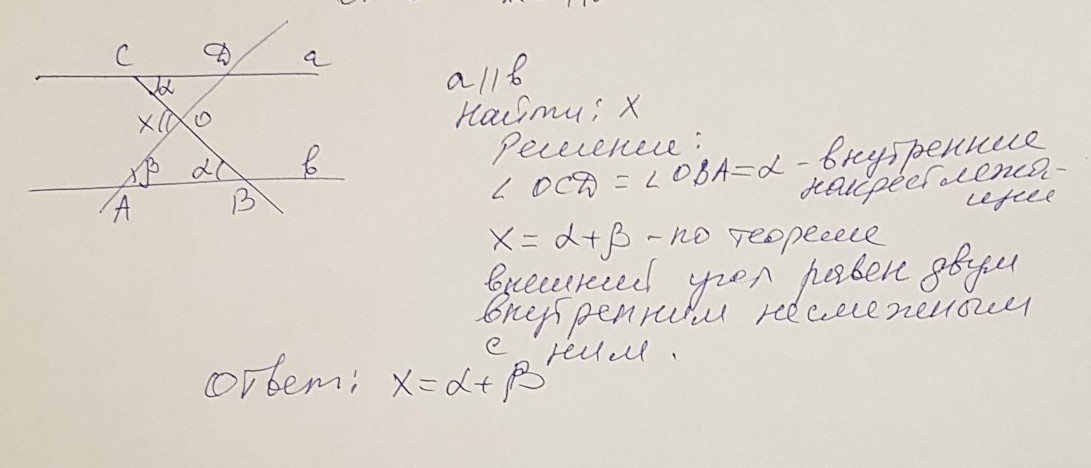 C D a
α
x O
β α в
A B
a || в
Найти: x
Решение:
∠OCD = ∠OBA = α - внутренние
накрест лежа-
щие
x = α + β - по теореме
внешний угол равен двум
внутренним несмежным
с ним.
Ответ: x = α + β